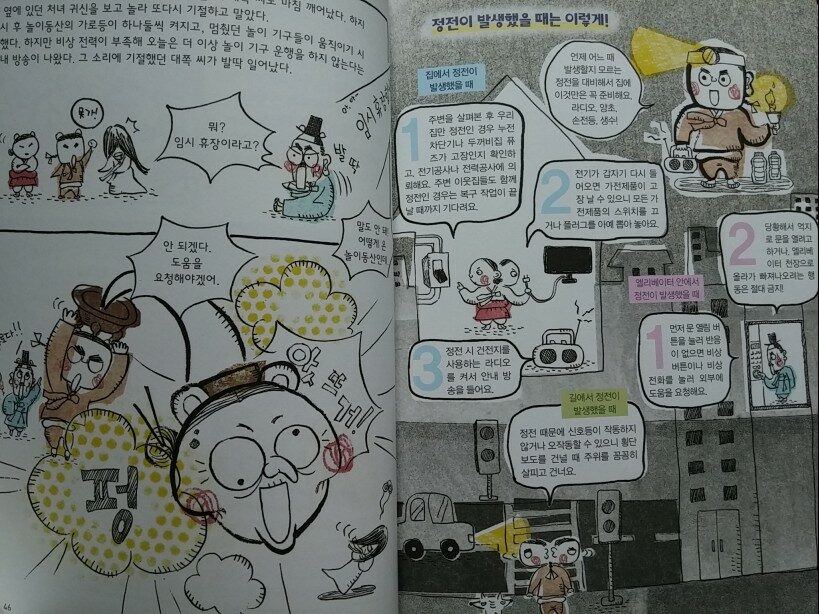 옆에 있던 처녀 귀신을 보고 놀라 또다시 기절하고 말았다.
시 후 놀이동산의 가로등이 하나둘씩 켜지고, 멈췄던 놀이 기구들이 움직이기 시
했다. 하지만 비상 전력이 부족해 오늘은 더 이상 놀이 기구 운행을 하지 않는다는
내 방송이 나왔다. 그 소리에 기절했던 대쪽 씨가 발딱 일어났다.
뭐?
임시 휴장이라고?
임시 휴장
발딱
말도 안 돼!
어떻게 온
놀이동산인데
안 되겠다.
도움을
요청해야겠어.
앗 뜨거!
펑
46
정전이 발생했을 때는 이렇게!
언제 어느 때
발생할지 모르는
정전을 대비해서 집에
이것만은 꼭 준비해요.
라디오, 양초,
손전등, 생수!
집에서 정전이
발생했을 때
1
주변을 살펴본 후 우리
집만 정전인 경우 누전
차단기나 두꺼비집 퓨
즈가 고장인지 확인하
고, 전기공사나 전력공사에 의
뢰해요. 주변 이웃집들도 함께
정전인 경우는 복구 작업이 끝
날 때까지 기다려요.
2
전기가 갑자기 다시 들
어오면 가전제품이 고
장 날 수 있으니 모든 가
전제품의 스위치를 끄
거나 플러그를 아예 뽑아 놓아요.
3
정전 시 건전지를
사용하는 라디오
를 켜서 안내 방
송을 들어요.
엘리베이터 안에서
정전이 발생했을 때
1
먼저 문 열림 버
튼을 눌러 반응
이 없으면 비상
버튼이나 비상
전화를 눌러 외부에
도움을 요청해요.
2
당황해서 억지
로 문을 열려고
하거나, 엘리베
이터 천장으로
올라가 빠져나오려는 행
동은 절대 금지!
길에서 정전이
발생했을 때
정전 때문에 신호등이 작동하지
않거나 오작동할 수 있으니 횡단
보도를 건널 때 주위를 꼼꼼히
살피고 건너요.